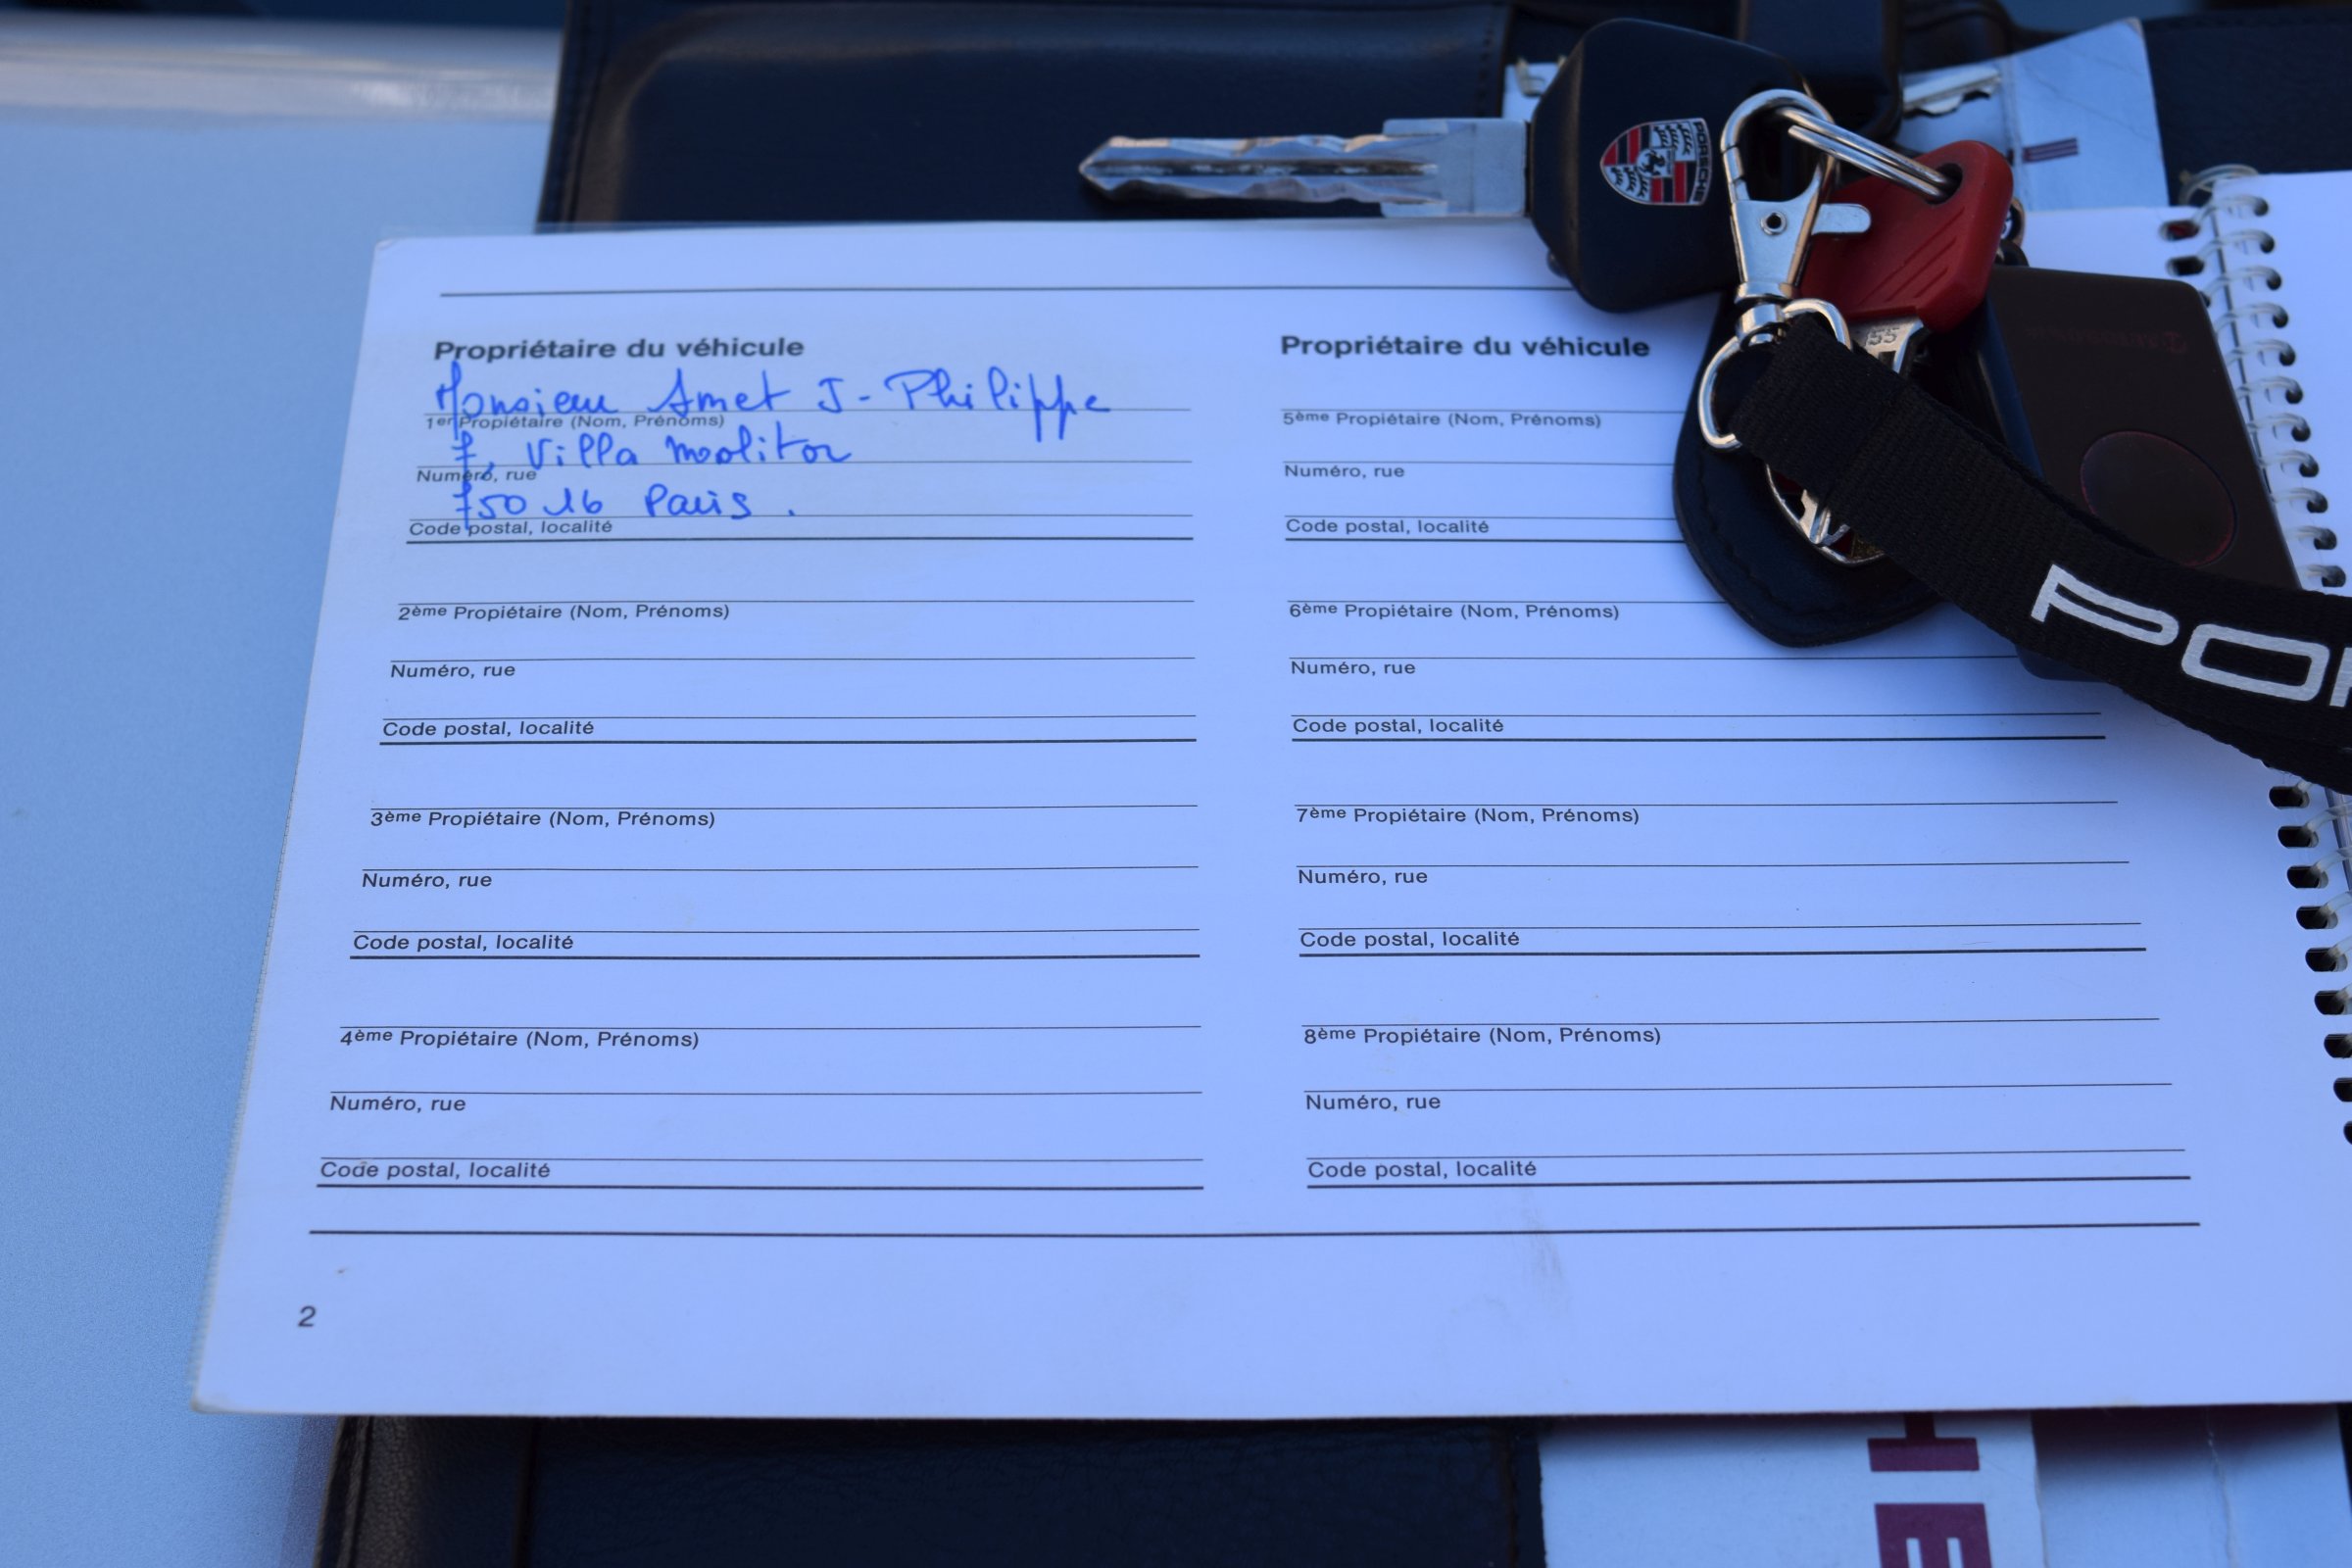 Propriétaire du véhicule
Monsieur Amet J-Philippe
1er Propiétaire (Nom, Prénoms)
7, Villa molitor
Numéro, rue
75016 Paris.
Code postal, localité
2ème Propiétaire (Nom, Prénoms)
Numéro, rue
Code postal, localité
3ème Propiétaire (Nom, Prénoms)
Numéro, rue
Code postal, localité
4ème Propiétaire (Nom, Prénoms)
Numéro, rue
Code postal, localité
2
Propriétaire du véhicule
5ème Propiétaire (Nom, Prénoms)
Numéro, rue
Code postal, localité
6ème Propiétaire (Nom, Prénoms)
Numéro, rue
Code postal, localité
7ème Propiétaire (Nom, Prénoms)
Numéro, rue
Code postal, localité
8ème Propiétaire (Nom, Prénoms)
Numéro, rue
Code postal, localité
PORSCHE
55
POR
HE